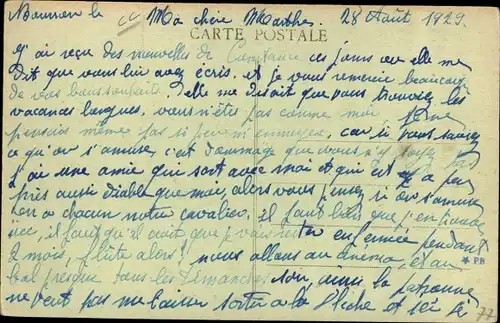 le Ma chère Marthe. 28 Août 1929.
CARTE POSTALE
j'ai reçu des nouvelles de Constance ces jours ou elle me
dit que vous lui avez écris. et je vous remercie beaucoup
de vos bons souhaits. elle me disait que vous trouviez les
vacances longues, vous n'êtes pas comme moi,
pensais même pas si peu m'ennuyer, car si vous saviez
ce qu'on s'amuse, c'est dommage que vous n'y soyez pas
j'ai une amie qui sort avec moi et qui est à peu
près aussi diable que moi, alors vous pensez si on s'amuse
on a chacun notre cavalier, il faut bien que j'en trouve
ici, il faut qu'il croit que je vais rester enfermée pendant
2 mois, zute alors! nous allons au cinéma, et au
PB
bal presque tous les Dimanches soir, ainsi la patronne
ne veut pas me laisser sortir a la Flèche et ici je
77